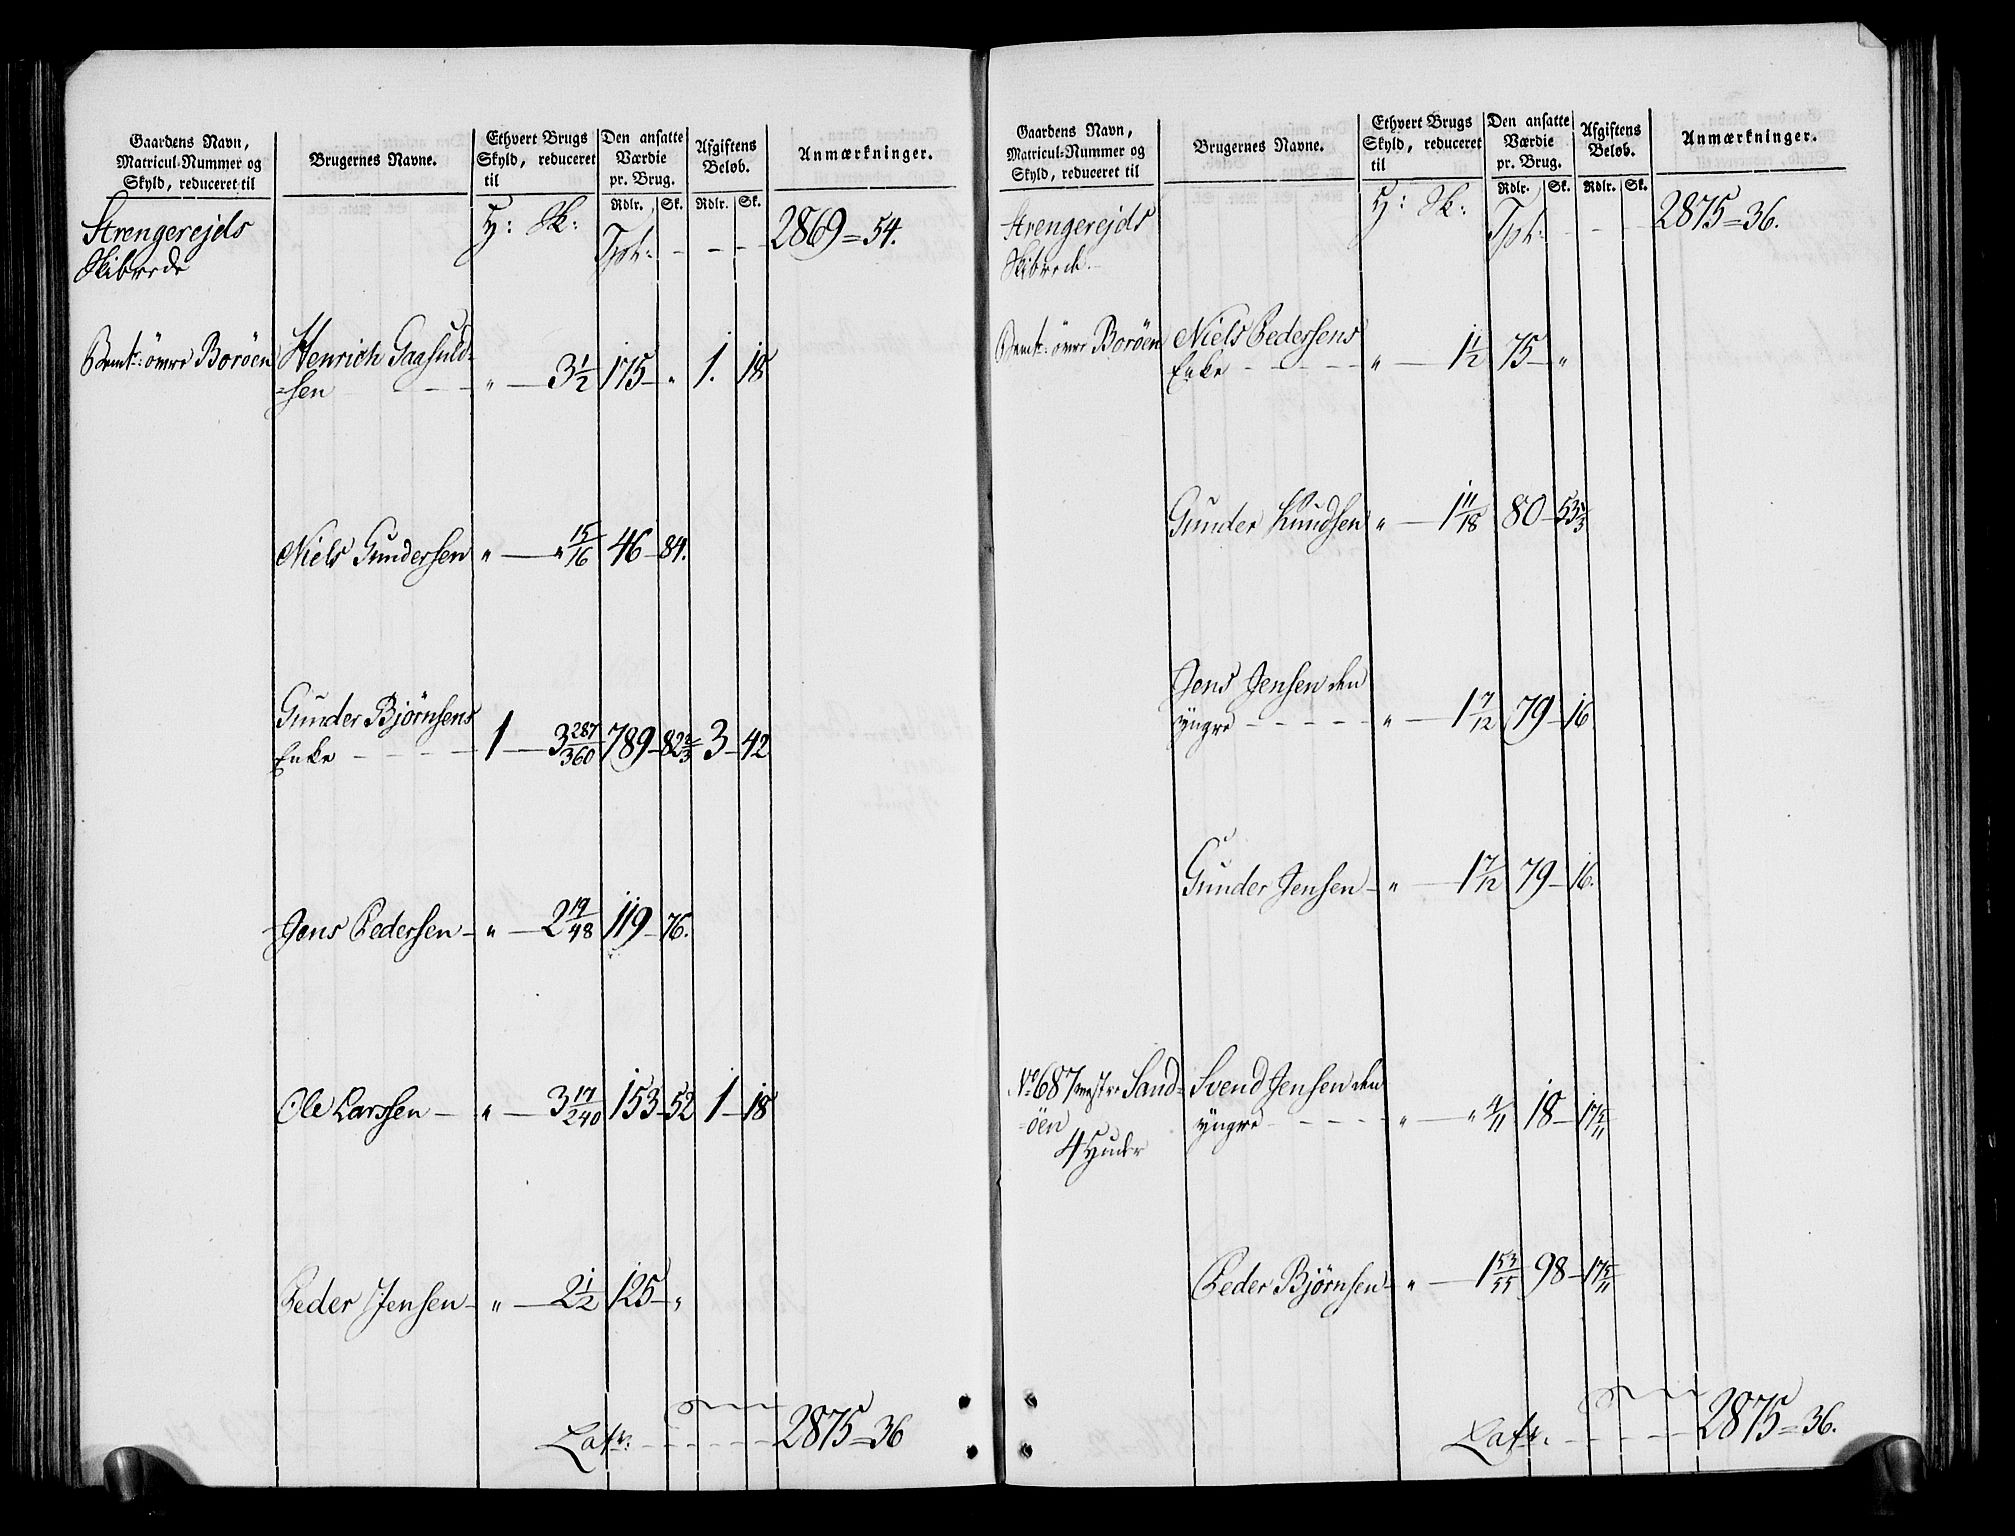 Gaardens Navn, Matricul-Nummer og Skyld, reduceret til
Brugernes Navne.
Ethvert Brugs Skyld, reduceret til
Den ansatte Værdie pr. Brug.
Afgiftens Beløb.
Anmærkninger.
Rdlr. Sk. Rdlr. Sk.
Strengerejds H: Sk: Tpt: - - - 2869=54.
Skibrede
Bemte: öwre Boröen Henrich Gaasuld-
=sen - - - " — 3 1/2 175 - " 1. 18
Niels Gundersen " — " 15/16 46 - 84.
Gunder Bjørnsens
Enke - - - - 1 — 3 287/360 789 - 82 2/3 3 - 42
Jens Pedersen - " — 2 19/48 119 - 76.
Ole Larssen - " — 3 17/240 153 - 52 1 - 18
Peder Jensen - " — 2 1/2 125 - "
Latr: - - - - - 2875=36
Gaardens Navn, Matricul-Nummer og Skyld, reduceret til
Brugernes Navne.
Ethvert Brugs Skyld, reduceret til
Den ansatte Værdie pr. Brug.
Afgiftens Beløb.
Anmærkninger.
Rdlr. Sk. Rdlr. Sk.
Strengerejds H: Sk: Tpt: - - - 2875=36.
Skibrede.
Bemte: öwre Boröen Niels Pedersens
Enke - - - - - " — 1 1/2 75 - "
Gunder Knudsen " — 1 11/18 80 - 53 1/3
Jens Jensen den
yngre - - - - - " — 1 7/12 79 - 16
Gunder Jensen - " — 1 7/12 79 - 16.
No 687 westre Sand= Svend Jensen den
=öen yngre - - - - - " — " 4/11 18 - 17 5/11
4 Huder
Peder Bjørnsen - " — 1 53/55 98 - 17 5/11
Latr. - - - - - 2875=36.